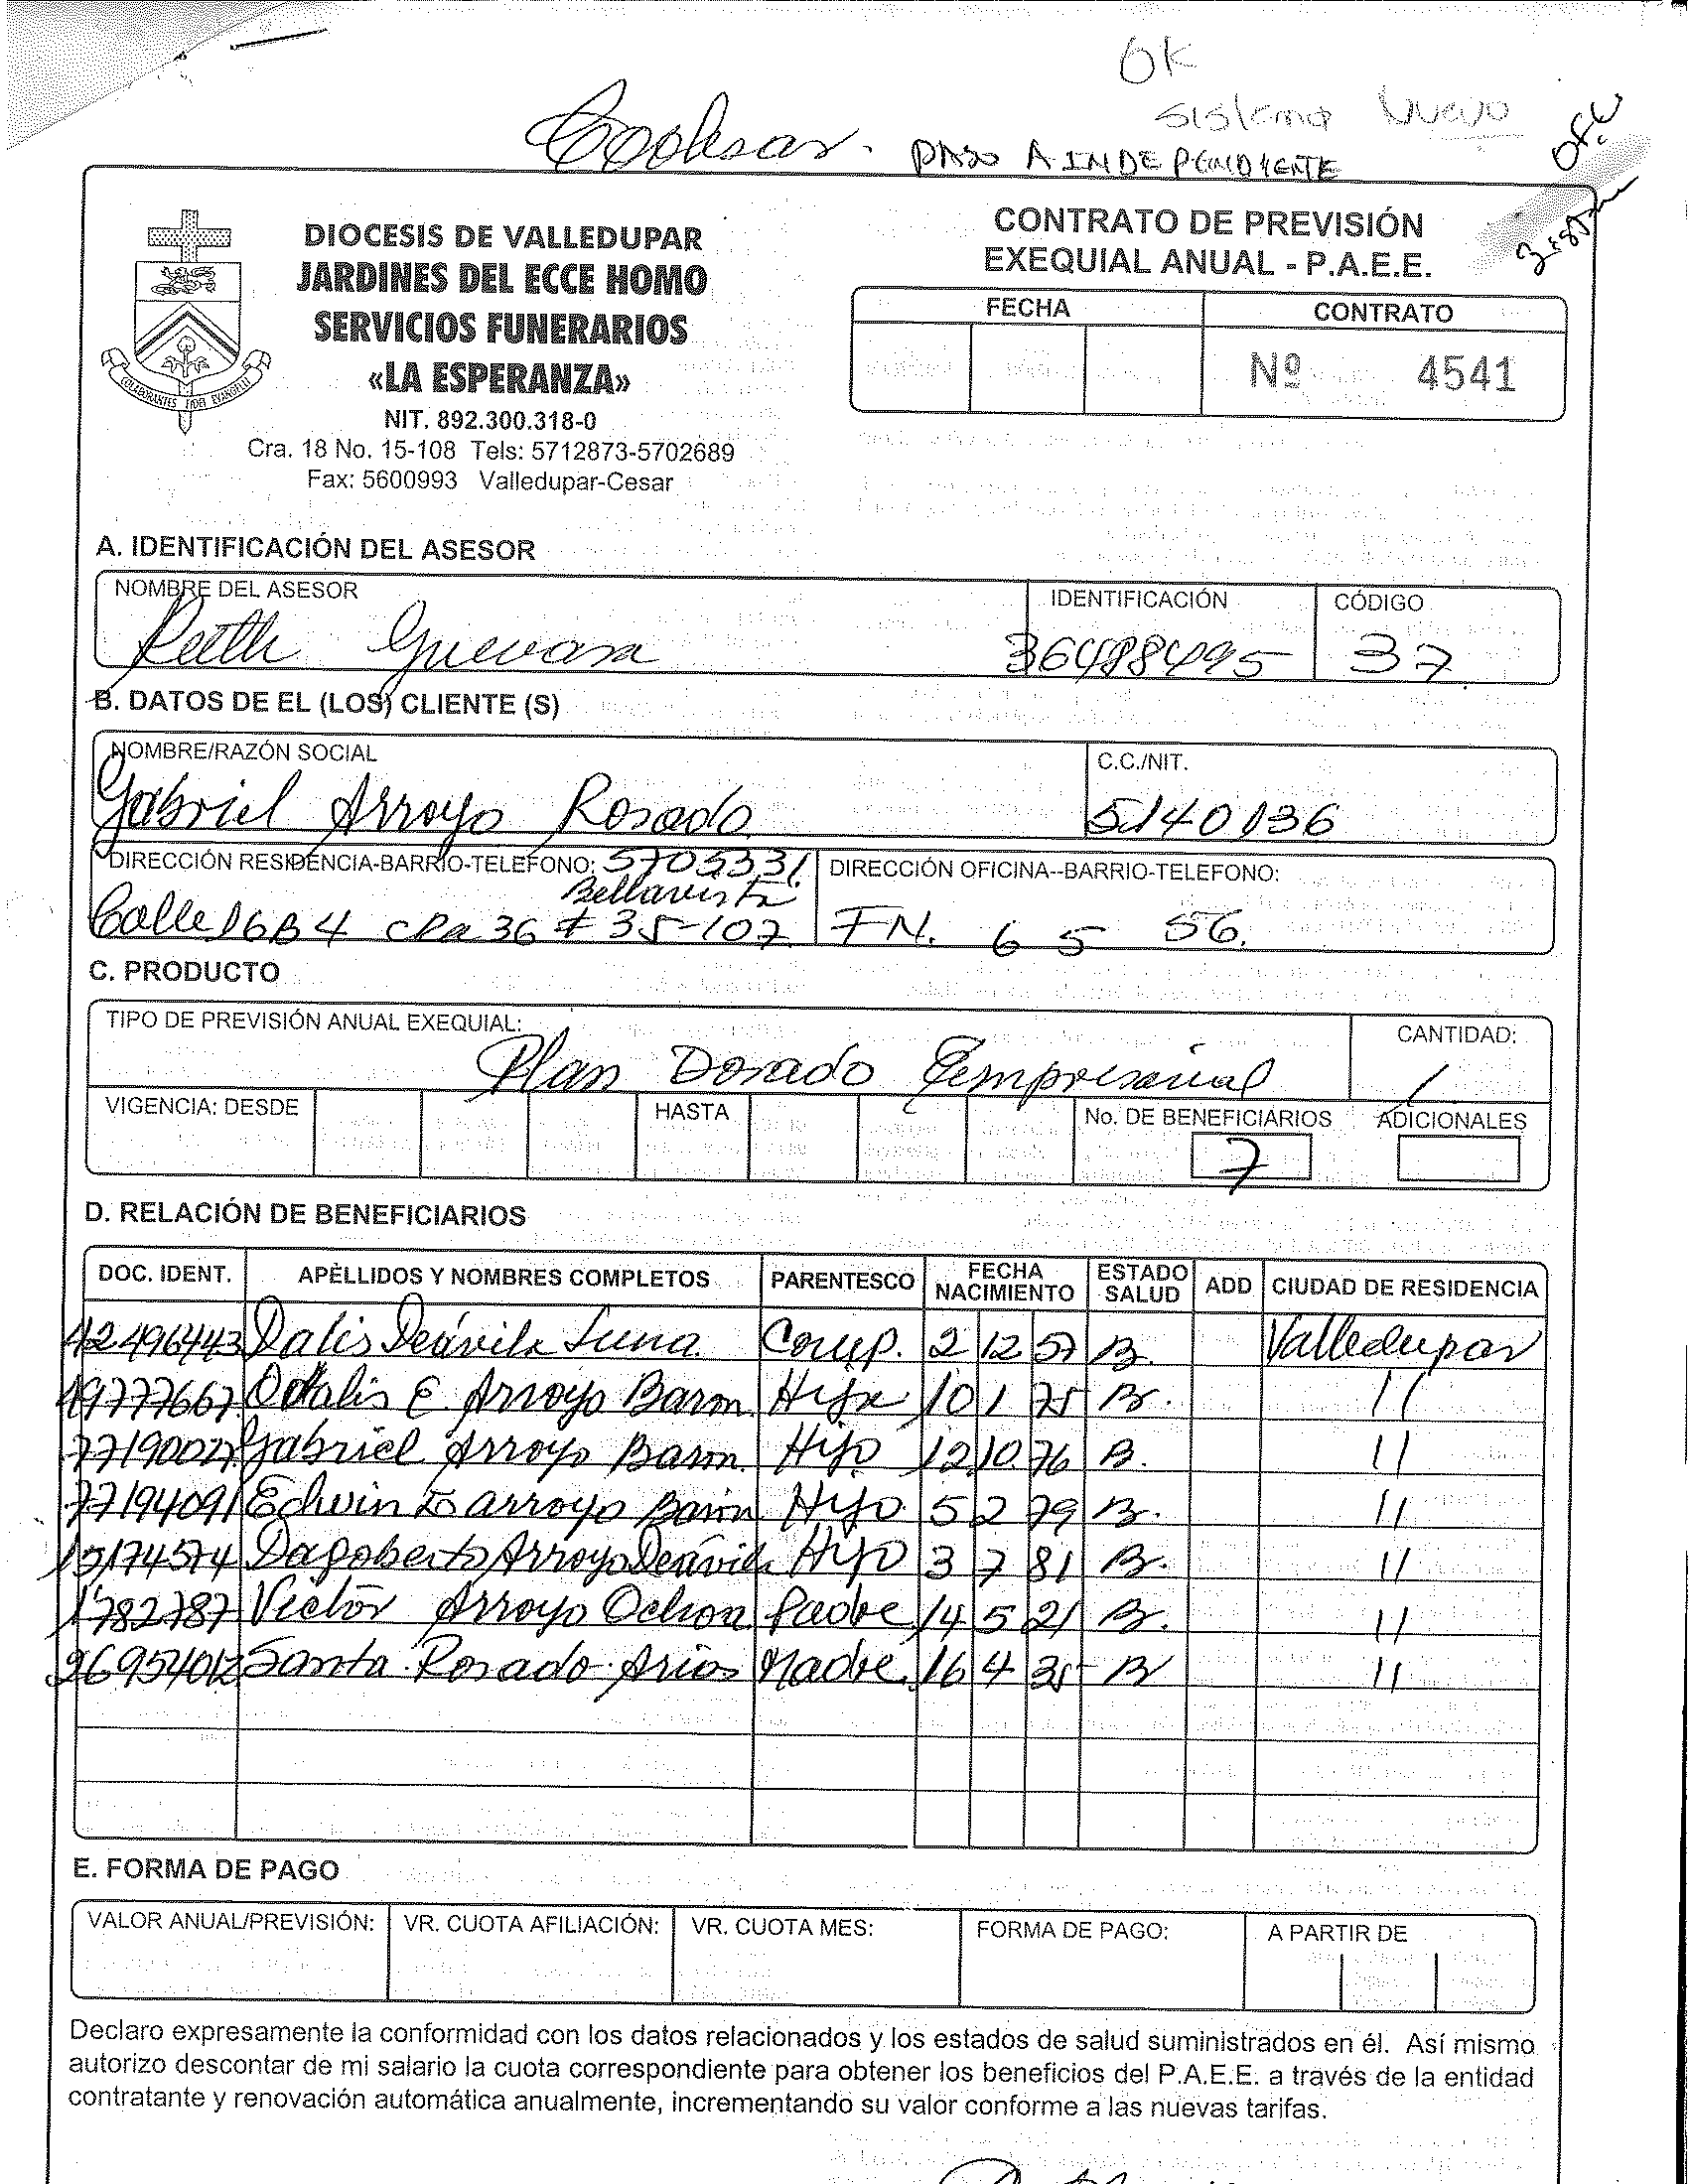 OK
sistema Nuevo
Coolesar. PASO A INDEPENDIENTE
DIOCESIS DE VALLEDUPAR
JARDINES DEL ECCE HOMO
SERVICIOS FUNERARIOS
«LA ESPERANZA»
NIT. 892.300.318-0
Cra. 18 No. 15-108 Tels: 5712873-5702689
Fax: 5600993 Valledupar-Cesar
COLABORANTES FIDEI EVANGELII
CONTRATO DE PREVISIÓN
EXEQUIAL ANUAL - P.A.E.E.
FECHA CONTRATO
Nº 4541
A. IDENTIFICACIÓN DEL ASESOR
NOMBRE DEL ASESOR IDENTIFICACIÓN CÓDIGO
Ruth Guevara 36488495 37
B. DATOS DE EL (LOS) CLIENTE (S)
NOMBRE/RAZÓN SOCIAL C.C./NIT.
Gabriel Arroyo Rosado 5140136
DIRECCIÓN RESIDENCIA-BARRIO-TELEFONO: 5705331 DIRECCIÓN OFICINA--BARRIO-TELEFONO:
Bellavista
Calle 16B4 cra 36 # 35-107 FN. 6 5 56.
C. PRODUCTO
TIPO DE PREVISIÓN ANUAL EXEQUIAL: CANTIDAD:
Plan Dorado Empresarial 1
VIGENCIA: DESDE HASTA No. DE BENEFICIARIOS ADICIONALES
7
D. RELACIÓN DE BENEFICIARIOS
DOC. IDENT. APELLIDOS Y NOMBRES COMPLETOS PARENTESCO FECHA NACIMIENTO ESTADO SALUD ADD CIUDAD DE RESIDENCIA
42496443 Dalis Deávila Luna Comp. 2 12 57 B. Valledupar
49777667 Odalis E Arroyo Baron Hija 10 1 75 B. 11
7719002 Gabriel Arroyo Baron Hijo 12 10 76 B. 11
77194091 Edwin E arroyo Baron Hijo 5 2 79 B. 11
15174574 Dagoberto Arroyo Deávila Hijo 3 7 81 B. 11
1782787 Victor Arroyo Ochoa Padre 14 5 21 B. 11
26954012 Santa Rosado Arias Madre 16 4 35 B 11
E. FORMA DE PAGO
VALOR ANUAL/PREVISIÓN: VR. CUOTA AFILIACIÓN: VR. CUOTA MES: FORMA DE PAGO: A PARTIR DE
Declaro expresamente la conformidad con los datos relacionados y los estados de salud suministrados en él. Así mismo
autorizo descontar de mi salario la cuota correspondiente para obtener los beneficios del P.A.E.E. a través de la entidad
contratante y renovación automática anualmente, incrementando su valor conforme a las nuevas tarifas.